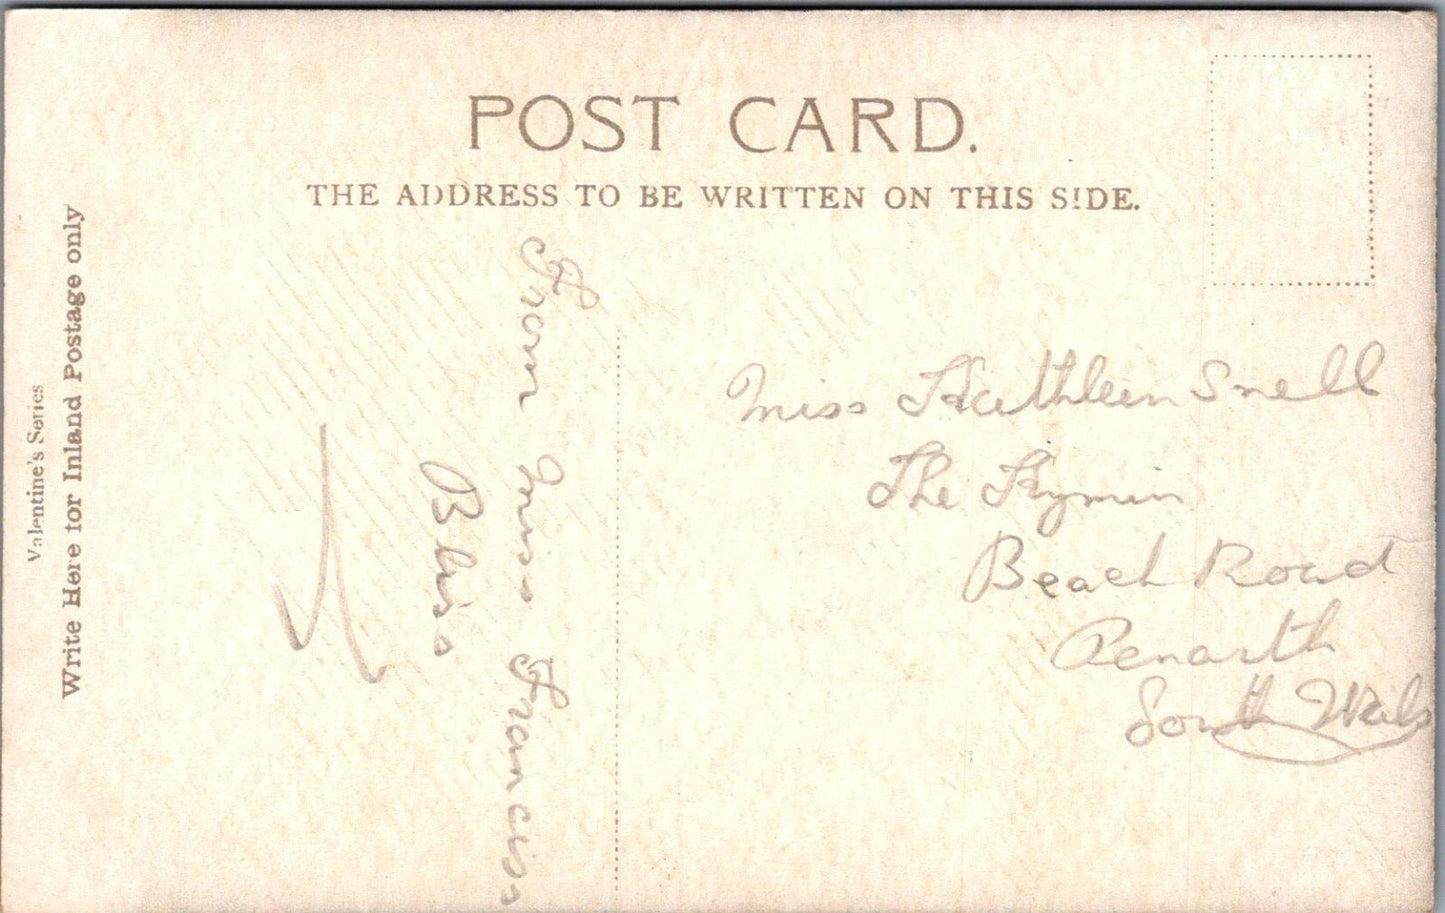 POST CARD.
THE ADDRESS TO BE WRITTEN ON THIS SIDE.
Valentine's Series
Write Here for Inland Postage only
From Miss Franciss
Bliss
Miss Kathleen Snell
The Kymin
Beach Road
Penarth
South Wales